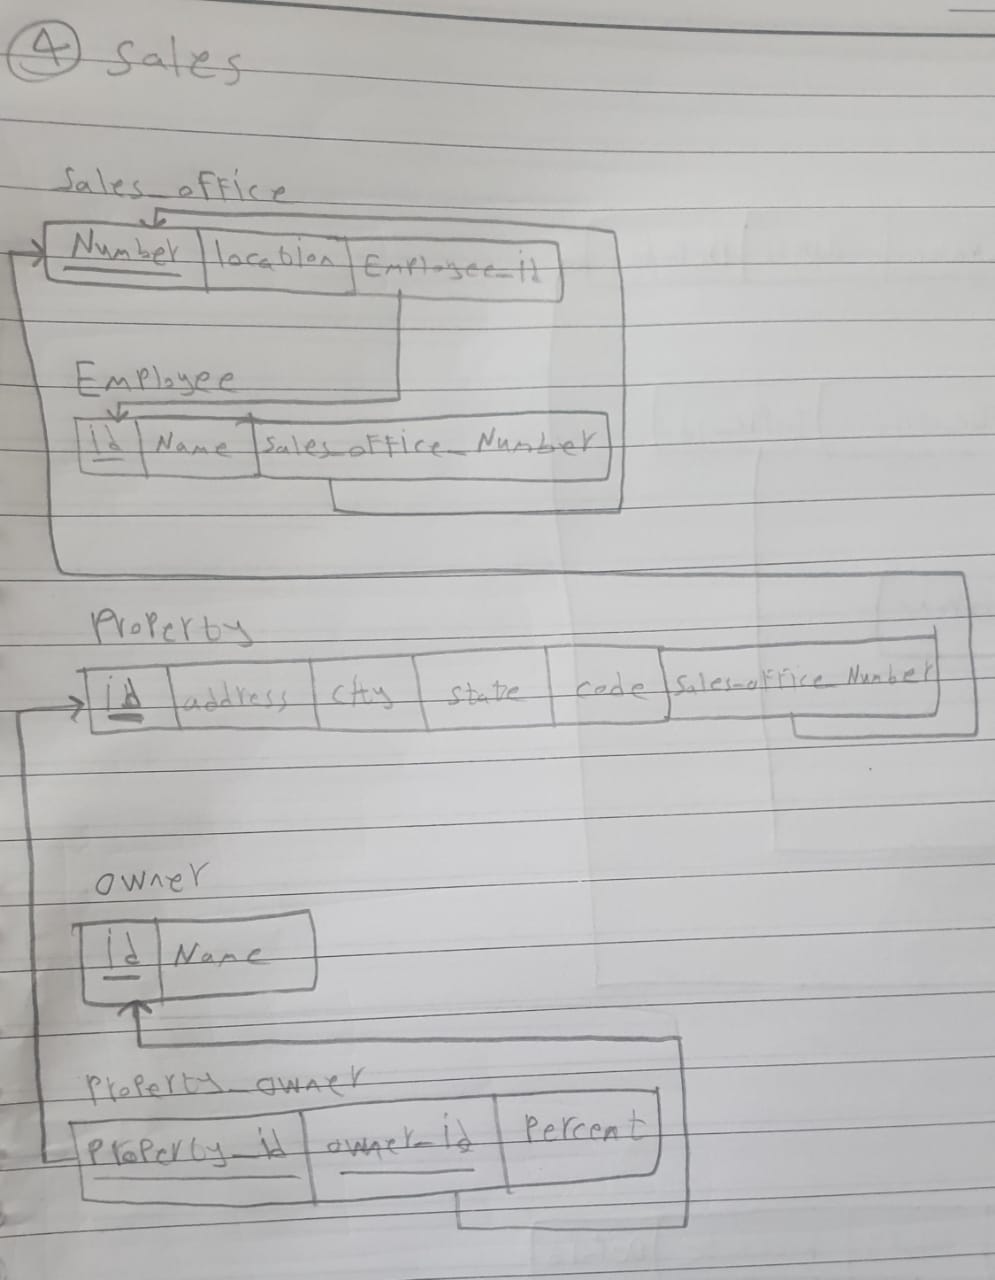 4 Sales
Sales_office
Number location Employee_id
Employee
id Name Sales_office_Number
Property
id address City state code Sales_office_Number
owner
id Name
Property_owner
Property_id owner_id Percent